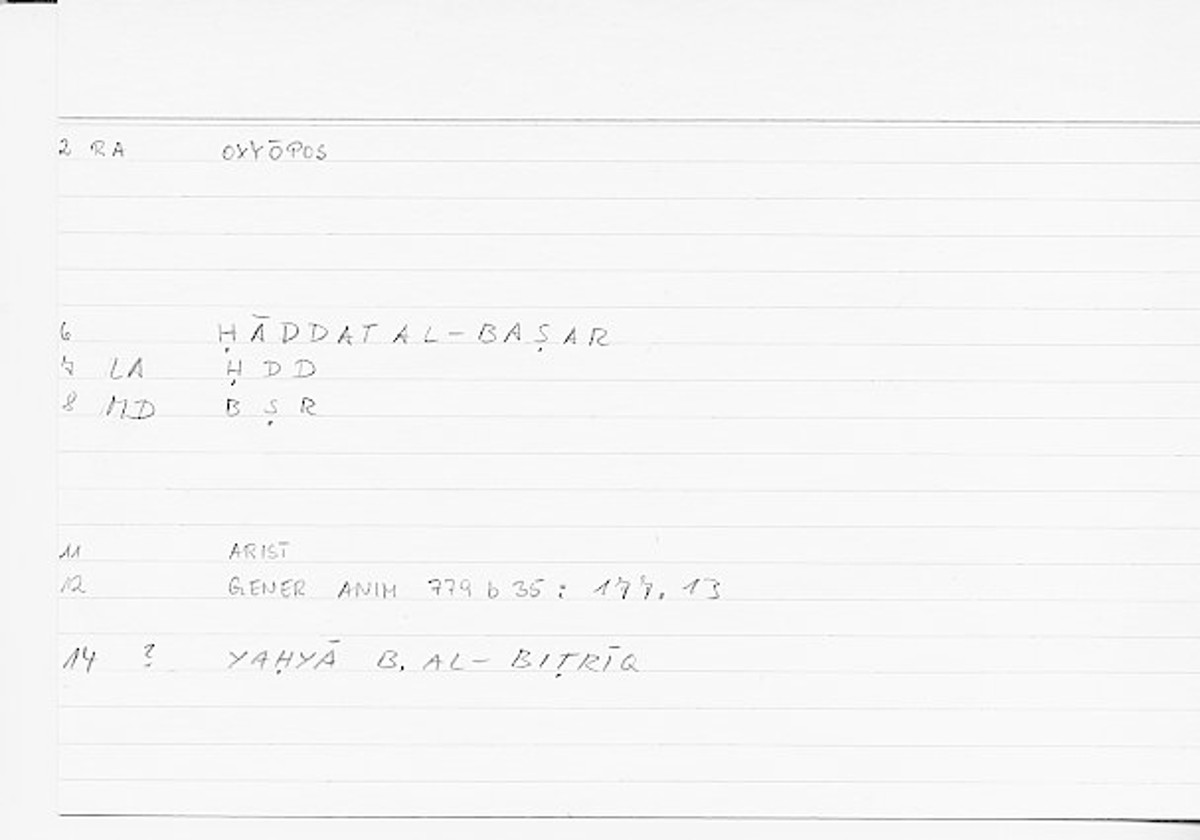 2 RA OXYŌPOS
6 ḤĀDDAT AL-BAṢAR
7 LA ḤDD
8 MD BṢR
11 ARIST
12 GENER ANIM 779 b 35 : 177. 13
14 ? YAḤYĀ B. AL-BIṬRĪQ